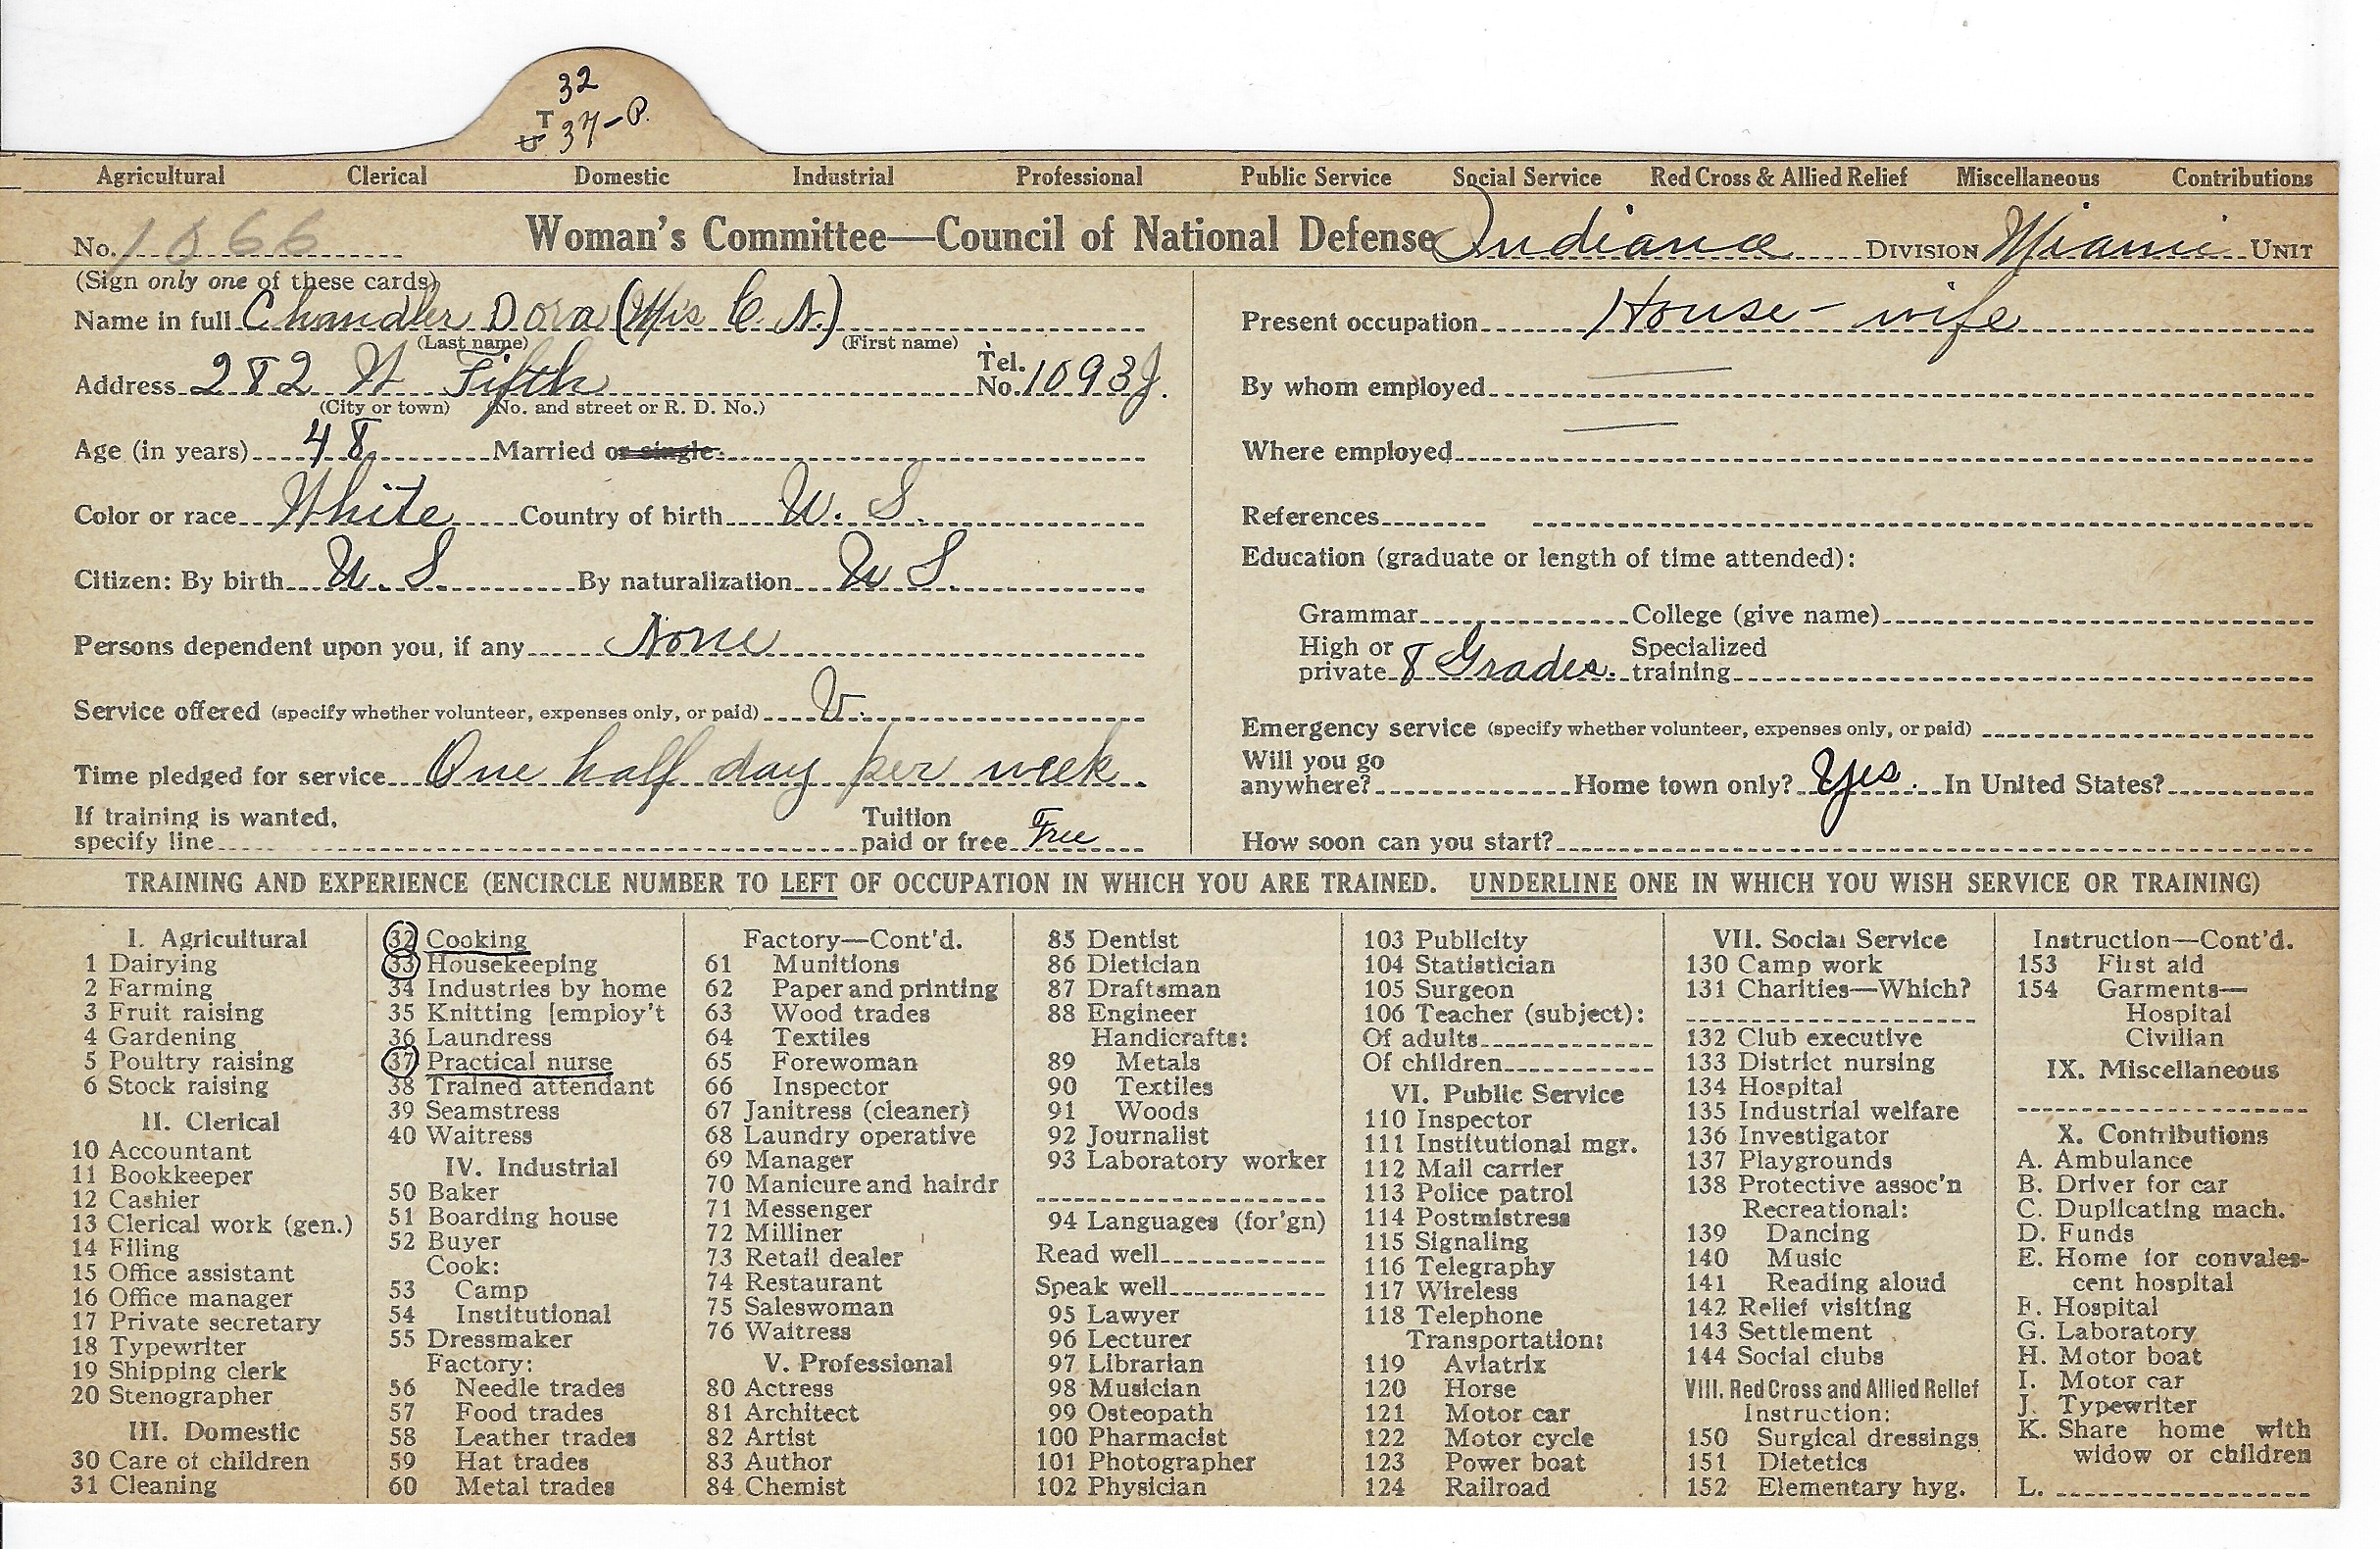 32
T
U 37-P.
Agricultural Clerical Domestic Industrial Professional Public Service Social Service Red Cross & Allied Relief Miscellaneous Contributions
No. 1066 Woman's Committee—Council of National Defense Indiana DIVISION Miami UNIT
(Sign only one of these cards)
Name in full Chandler Dora (Mrs C. N.)
(Last name) (First name)
Address 282 W Fifth Tel. No. 1093J.
(City or town) (No. and street or R. D. No.)
Age (in years) 48 Married or single
Color or race White Country of birth U. S.
Citizen: By birth U. S. By naturalization U S.
Persons dependent upon you, if any None
Service offered (specify whether volunteer, expenses only, or paid) V.
Time pledged for service One half day per week
If training is wanted, specify line Tuition paid or free Free
Present occupation House-wife
By whom employed
Where employed
References
Education (graduate or length of time attended):
Grammar College (give name)
High or private 8 Grades. Specialized training
Emergency service (specify whether volunteer, expenses only, or paid)
Will you go anywhere? Home town only? Yes. In United States?
How soon can you start?
TRAINING AND EXPERIENCE (ENCIRCLE NUMBER TO LEFT OF OCCUPATION IN WHICH YOU ARE TRAINED. UNDERLINE ONE IN WHICH YOU WISH SERVICE OR TRAINING)
I. Agricultural
1 Dairying
2 Farming
3 Fruit raising
4 Gardening
5 Poultry raising
6 Stock raising
II. Clerical
10 Accountant
11 Bookkeeper
12 Cashier
13 Clerical work (gen.)
14 Filing
15 Office assistant
16 Office manager
17 Private secretary
18 Typewriter
19 Shipping clerk
20 Stenographer
III. Domestic
30 Care of children
31 Cleaning
32 Cooking
33 Housekeeping
34 Industries by home
35 Knitting [employ't
36 Laundress
37 Practical nurse
38 Trained attendant
39 Seamstress
40 Waitress
IV. Industrial
50 Baker
51 Boarding house
52 Buyer
Cook:
53 Camp
54 Institutional
55 Dressmaker
Factory:
56 Needle trades
57 Food trades
58 Leather trades
59 Hat trades
60 Metal trades
Factory—Cont'd.
61 Munitions
62 Paper and printing
63 Wood trades
64 Textiles
65 Forewoman
66 Inspector
67 Janitress (cleaner)
68 Laundry operative
69 Manager
70 Manicure and hairdr
71 Messenger
72 Milliner
73 Retail dealer
74 Restaurant
75 Saleswoman
76 Waitress
V. Professional
80 Actress
81 Architect
82 Artist
83 Author
84 Chemist
85 Dentist
86 Dietician
87 Draftsman
88 Engineer
Handicrafts:
89 Metals
90 Textiles
91 Woods
92 Journalist
93 Laboratory worker
94 Languages (for'gn)
Read well
Speak well
95 Lawyer
96 Lecturer
97 Librarian
98 Musician
99 Osteopath
100 Pharmacist
101 Photographer
102 Physician
103 Publicity
104 Statistician
105 Surgeon
106 Teacher (subject):
Of adults
Of children
VI. Public Service
110 Inspector
111 Institutional mgr.
112 Mail carrier
113 Police patrol
114 Postmistress
115 Signaling
116 Telegraphy
117 Wireless
118 Telephone
Transportation:
119 Aviatrix
120 Horse
121 Motor car
122 Motor cycle
123 Power boat
124 Railroad
VII. Social Service
130 Camp work
131 Charities—Which?
132 Club executive
133 District nursing
134 Hospital
135 Industrial welfare
136 Investigator
137 Playgrounds
138 Protective assoc'n
Recreational:
139 Dancing
140 Music
141 Reading aloud
142 Relief visiting
143 Settlement
144 Social clubs
VIII. Red Cross and Allied Relief
Instruction:
150 Surgical dressings
151 Dietetics
152 Elementary hyg.
Instruction—Cont'd.
153 First aid
154 Garments—
Hospital
Civilian
IX. Miscellaneous
X. Contributions
A. Ambulance
B. Driver for car
C. Duplicating mach.
D. Funds
E. Home for convales-
cent hospital
F. Hospital
G. Laboratory
H. Motor boat
I. Motor car
J. Typewriter
K. Share home with
widow or children
L.